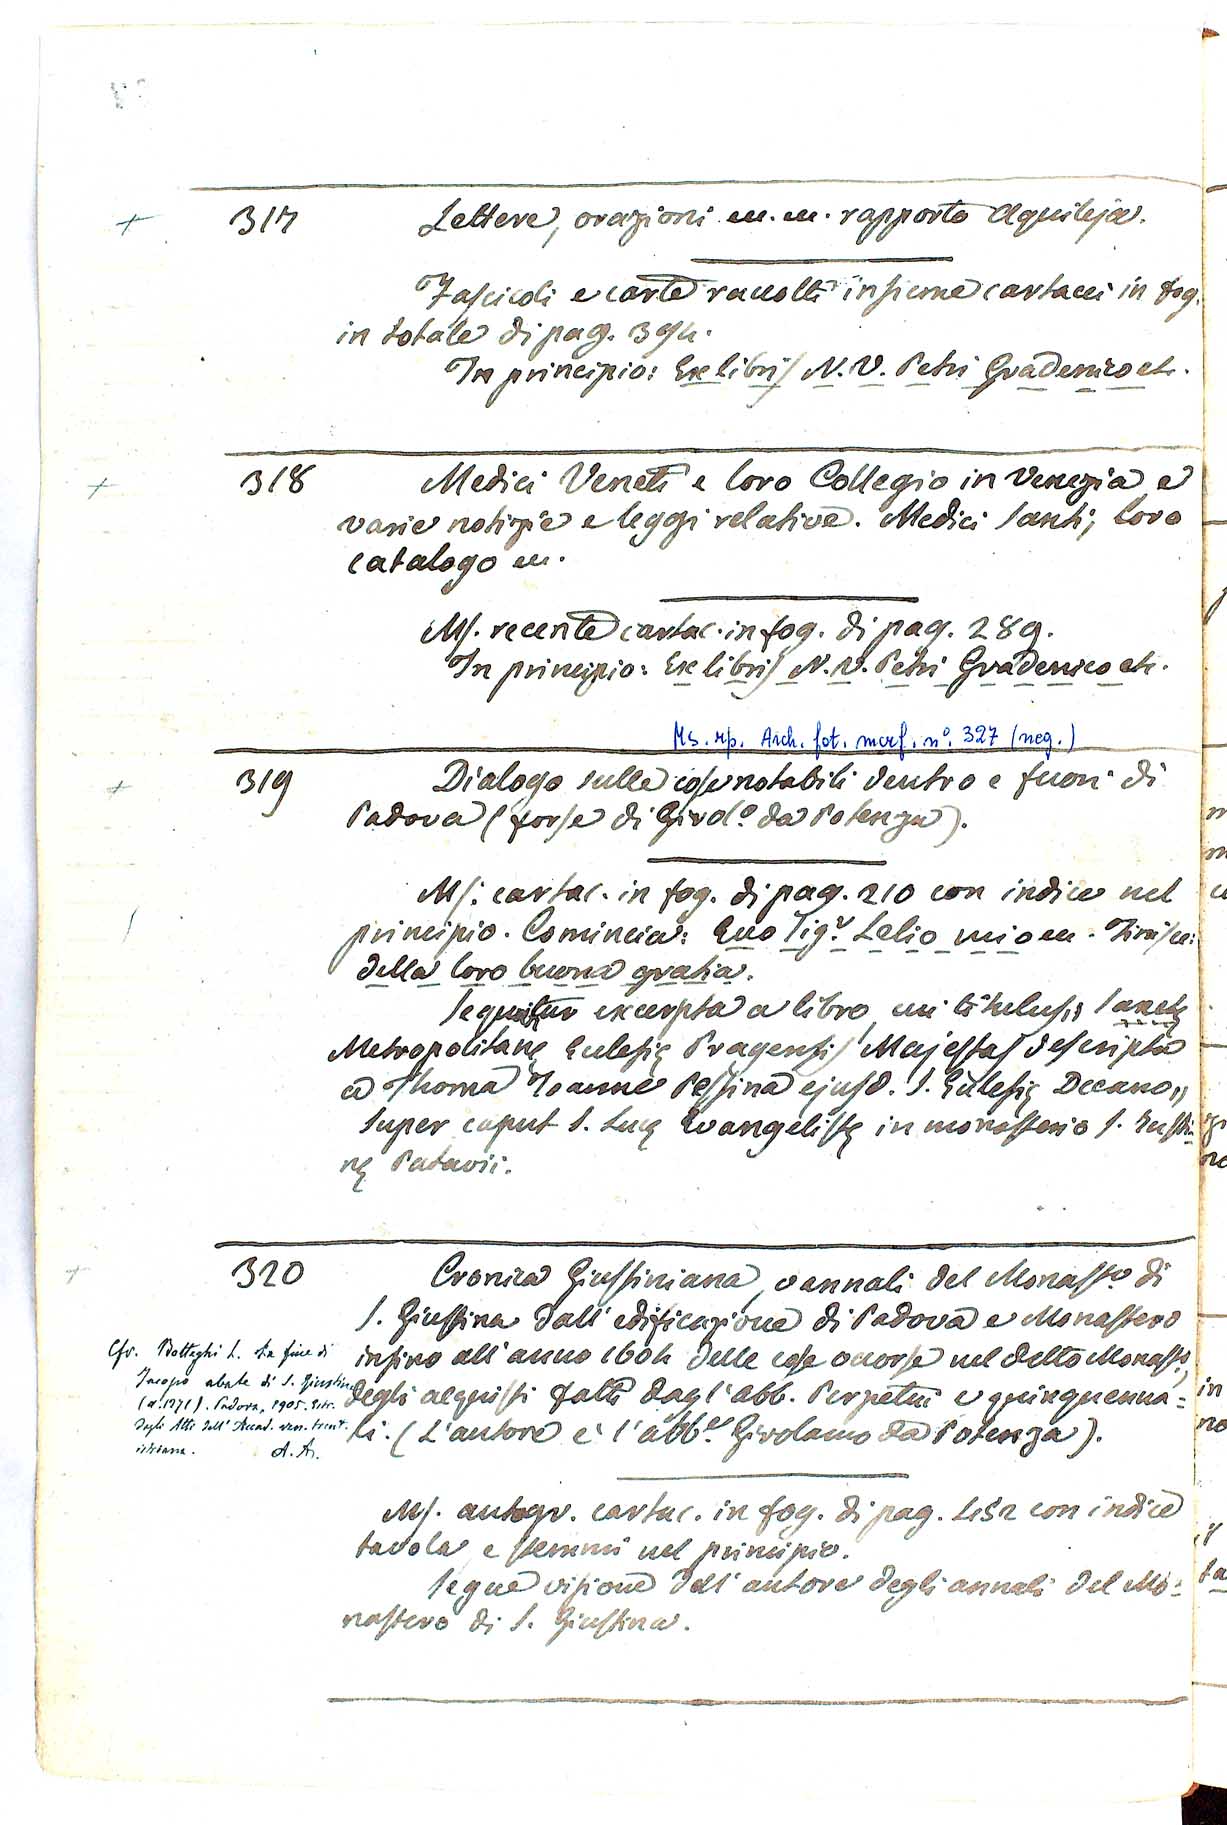 317 Lettere, orazioni ec. ec. rapporto Aquileja.
Fascicoli e carte raccolti insieme cartacei in fog.
in totale di pag. 394.
In principio: Ex libris N. V. Petri Gradenico etc.
318 Medici Veneti e loro Collegio in Venezia e
varie notizie e leggi relative. Medici santi, loro
catalogo ec.
Ms. recente cartac. in fog. di pag. 289.
In principio: Ex libris N. V. Petri Gradenico etc.
Ms. rip. Arch. fot. marf. n.° 327 (neg.)
319 Dialogo sulle cose notabili dentro e fuori di
Padova (forse di Girol.° da Potenza).
Ms. cartac. in fog. di pag. 210 con indice nel
principio. Comincia: Ecco Sig.r Lelio mio ec. Finisce:
della loro buona gratia.
Sequitur excerpta a libro, cui titulus,, Sanctę
Metropolitanę Eclesię Pragensis Majestas descripta
a Thoma Joanne Pessina ejusd. S. Eclesię Decano,,
super caput S. Lucę Evangelistę in monasterio S. Justi-
nę Patavii.
320 Cronica Giustiniana, o annali del Monast.° di
S. Giustina dall'edificazione di Padova e Monastero
insino all'anno 1604 delle cose occorse nel detto Monast.°,
degli acquisti fatti dagl'Abb. Perpetui e quinquenna=
li. (L'autore è l'abb.e Girolamo da Potenza).
Cfr. Botteghi L. La fine di
Jacopo abate di S. Giustina
(a. 1371). Padova, 1905. Estr.
dagli Atti dell'Accad. ven. trent.
istriana. A. A.
Ms. autogr. cartac. in fog. di pag. 452 con indice
tavola e stemmi nel principio.
Segue visione dell'autore degli annali del Mo=
nastero di S. Giustina.